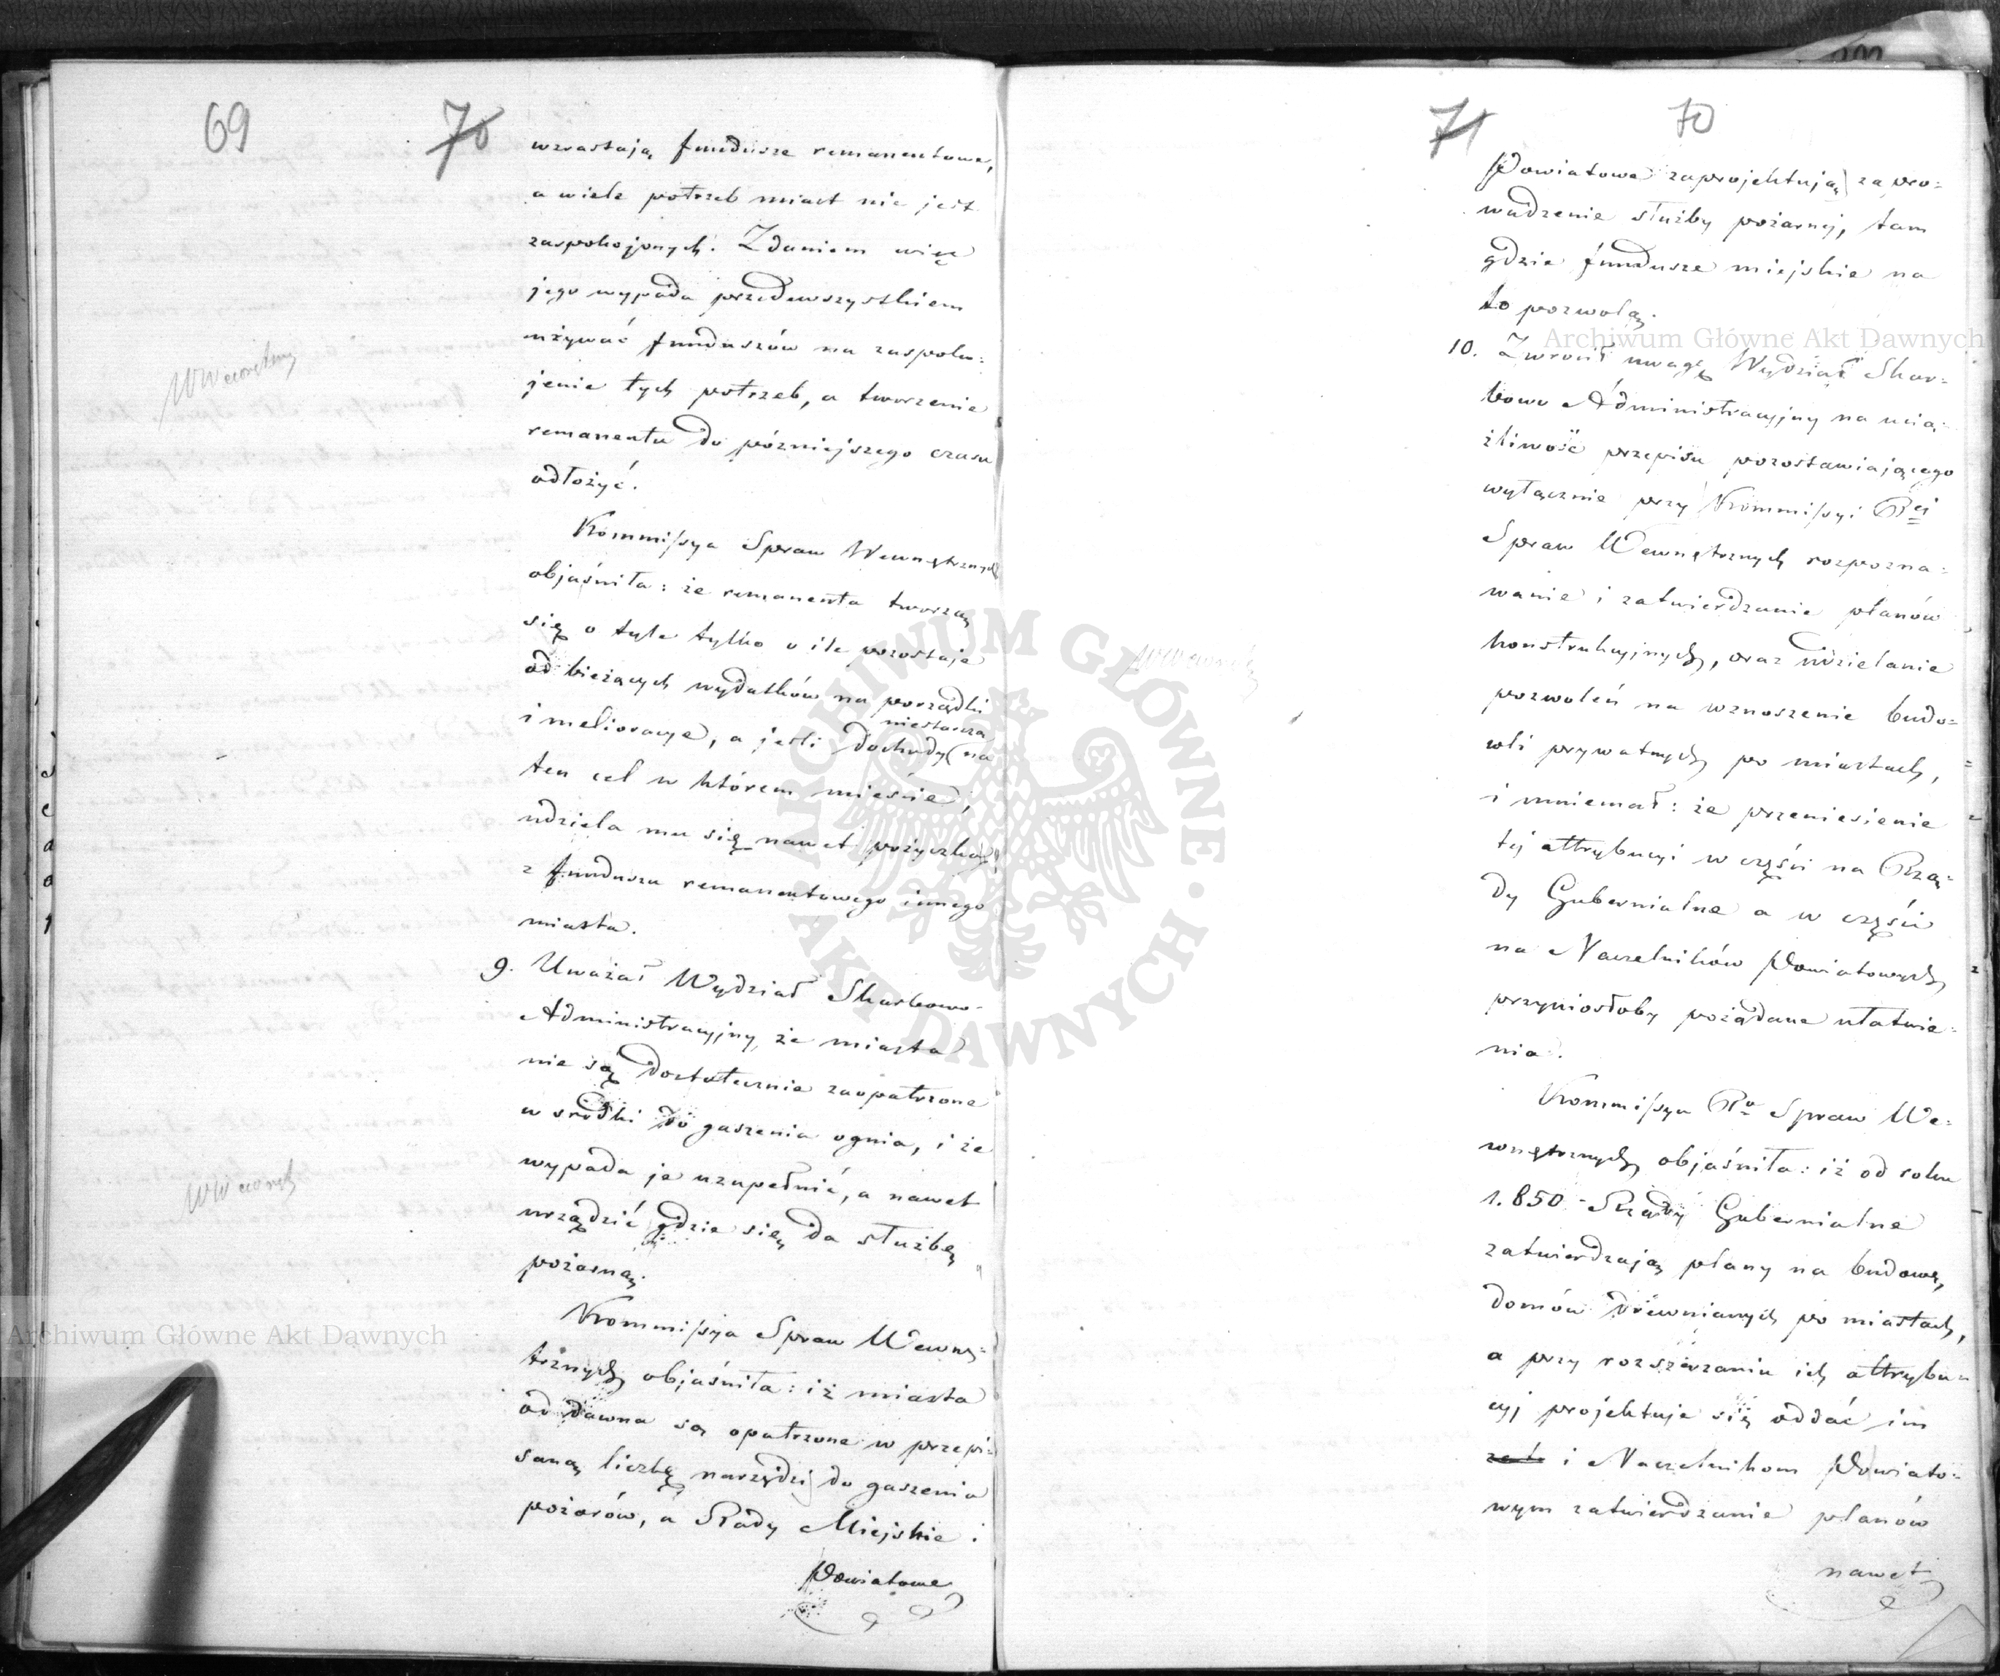 69
70
wzrastają fundusze remanentowe,
a wiele potrzeb miast nie jest
zaspokojonych. Zdaniem więc
jego wypada przedewszystkiem
używać funduszów na zaspoko-
jenie tych potrzeb, a tworzenie
remanentu do późniejszego czasu
odłożyć.
Kommissya Spraw Wewnętrznych
objaśniła: że remanenta tworzą
się o tyle tylko o ile pozostaje
od bieżących wydatków na porządki
niestarcza
i melioracye, a jeśli dochody na
ten cel w którem mieście,
udziela mu się nawet pożyczka
z funduszu remanentowego innego
miasta.
9. Uważał Wydział Skarbowo-
Administracyjny, że miasta
nie są dostatecznie zaopatrzone
w srodki do gaszenia ognia, i że
wypada je uzupełnić, a nawet
urządzić gdzie się da służbę
pożarną.
Kommissya Spraw Wewnę-
trznych objaśniła: iż miasta
od dawna są opatrzone w przepi-
saną liczbę narzędzi do gaszenia
pożarów, a Rady Miejskie i
Powiatowe
71
70
Powiatowe zaprojektują zapro-
wadzenie służby pożarnej, tam
gdzie fundusze miejskie na
to pozwolą.
10. Zwrócił uwagę Wydział Skar-
bowo Administracyjny na ucią-
żliwość przepisu pozostawiającego
wyłącznie przy Kommissyi Rej
Spraw Wewnętrznych rozpozna-
wanie i zatwierdzanie planów
konstrukcyjnych, oraz udzielanie
pozwoleń na wznoszenie budo-
wli prywatnych po miastach,
i mniemał: że przeniesienie
tej attrybucyi w części na Rzą-
dy Gubernialne a w części
na Naczelników Powiatowych
przyniosłoby pożądane ułatwie-
nia.
Kommissya Ra Spraw We-
wnętrznych objaśniła: iż od roku
1850 Rządy Gubernialne
zatwierdzają plany na budowę
domów drewnianych po miastach,
a przy rozszerzaniu ich attrybu-
cyj projektuje się oddać im
i Naczelnikom Powiato-
wym zatwierdzanie planów
nawet
Archiwum Główne Akt Dawnych
Archiwum Główne Akt Dawnych
ARCHIWUM GŁÓWNE
AKT DAWNYCH